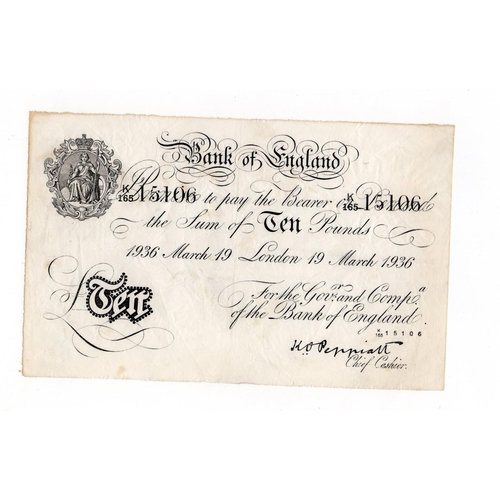 Bank of England
K/165 15106 to pay the Bearer on Demand K/165 15106
the Sum of Ten Pounds
1936 March 19 London 19 March 1936
For the Govr. and Compa.
of the Bank of England.
£Ten
K/165 15106
K.O. Peppiatt
Chief Cashier.